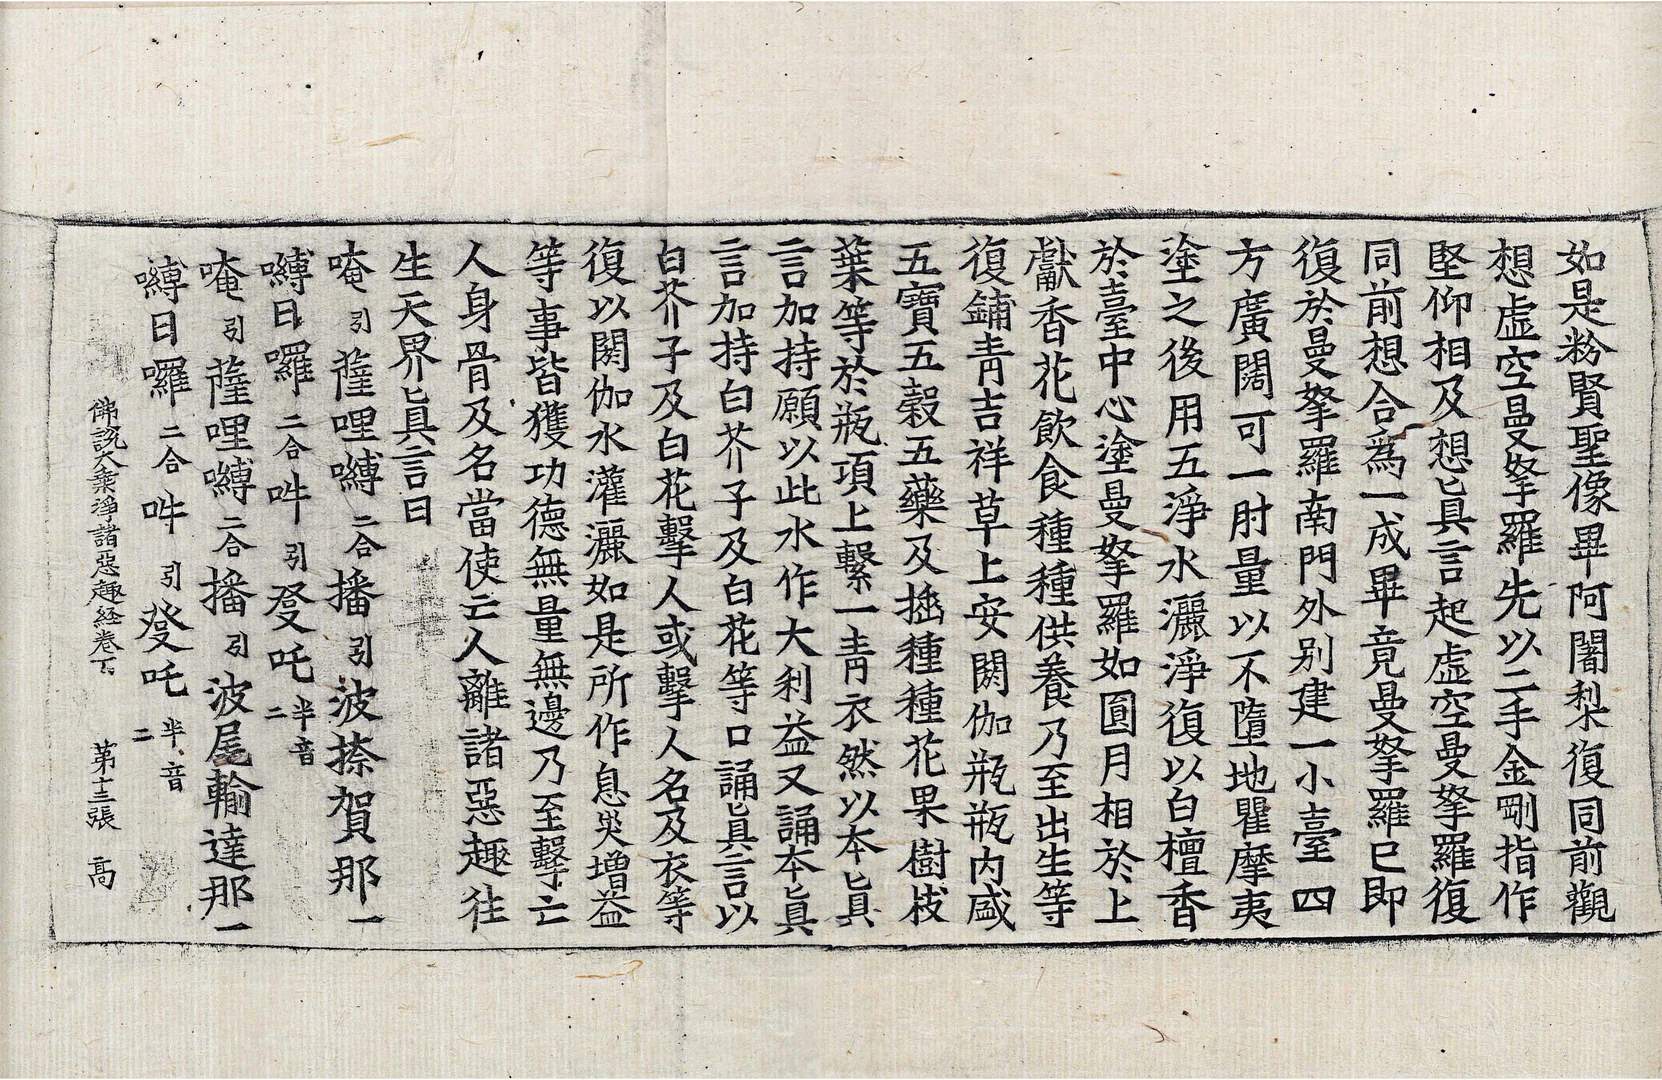 如是粉賢聖像畢阿闍梨復同前觀
想虛空曼拏羅先以二手金剛指作
堅仰相及想眞言起虛空曼拏羅復
同前想合為一成畢竟曼拏羅已即
復於曼拏羅南門外別建一小臺四
方廣闊可一肘量以不墮地瞿摩夷
塗之後用五淨水灑淨復以白檀香
於臺中心塗曼拏羅如圓月相於上
獻香花飲食種種供養乃至出生等
復鋪青吉祥草上安閼伽瓶瓶內盛
五寶五穀五藥及揷種種花果樹枝
葉等於瓶項上繫一青衣然以本眞
言加持願以此水作大利益又誦本眞
言加持白芥子及白花等口誦眞言以
白芥子及白花擊人或擊人名及衣等
復以閼伽水灌灑如是所作息災增益
等事皆獲功德無量無邊乃至擊亡
人身骨及名當使亡人離諸惡趣往
生天界眞言曰
唵引薩哩嚩二合播引波捺賀那一
嚩日囉二合吽引癹吒半音二
唵引薩哩嚩二合播引波尾輸達那一
嚩日囉二合吽引癹吒半音二
佛說大乗淨諸惡趣経卷下 第十三張 高